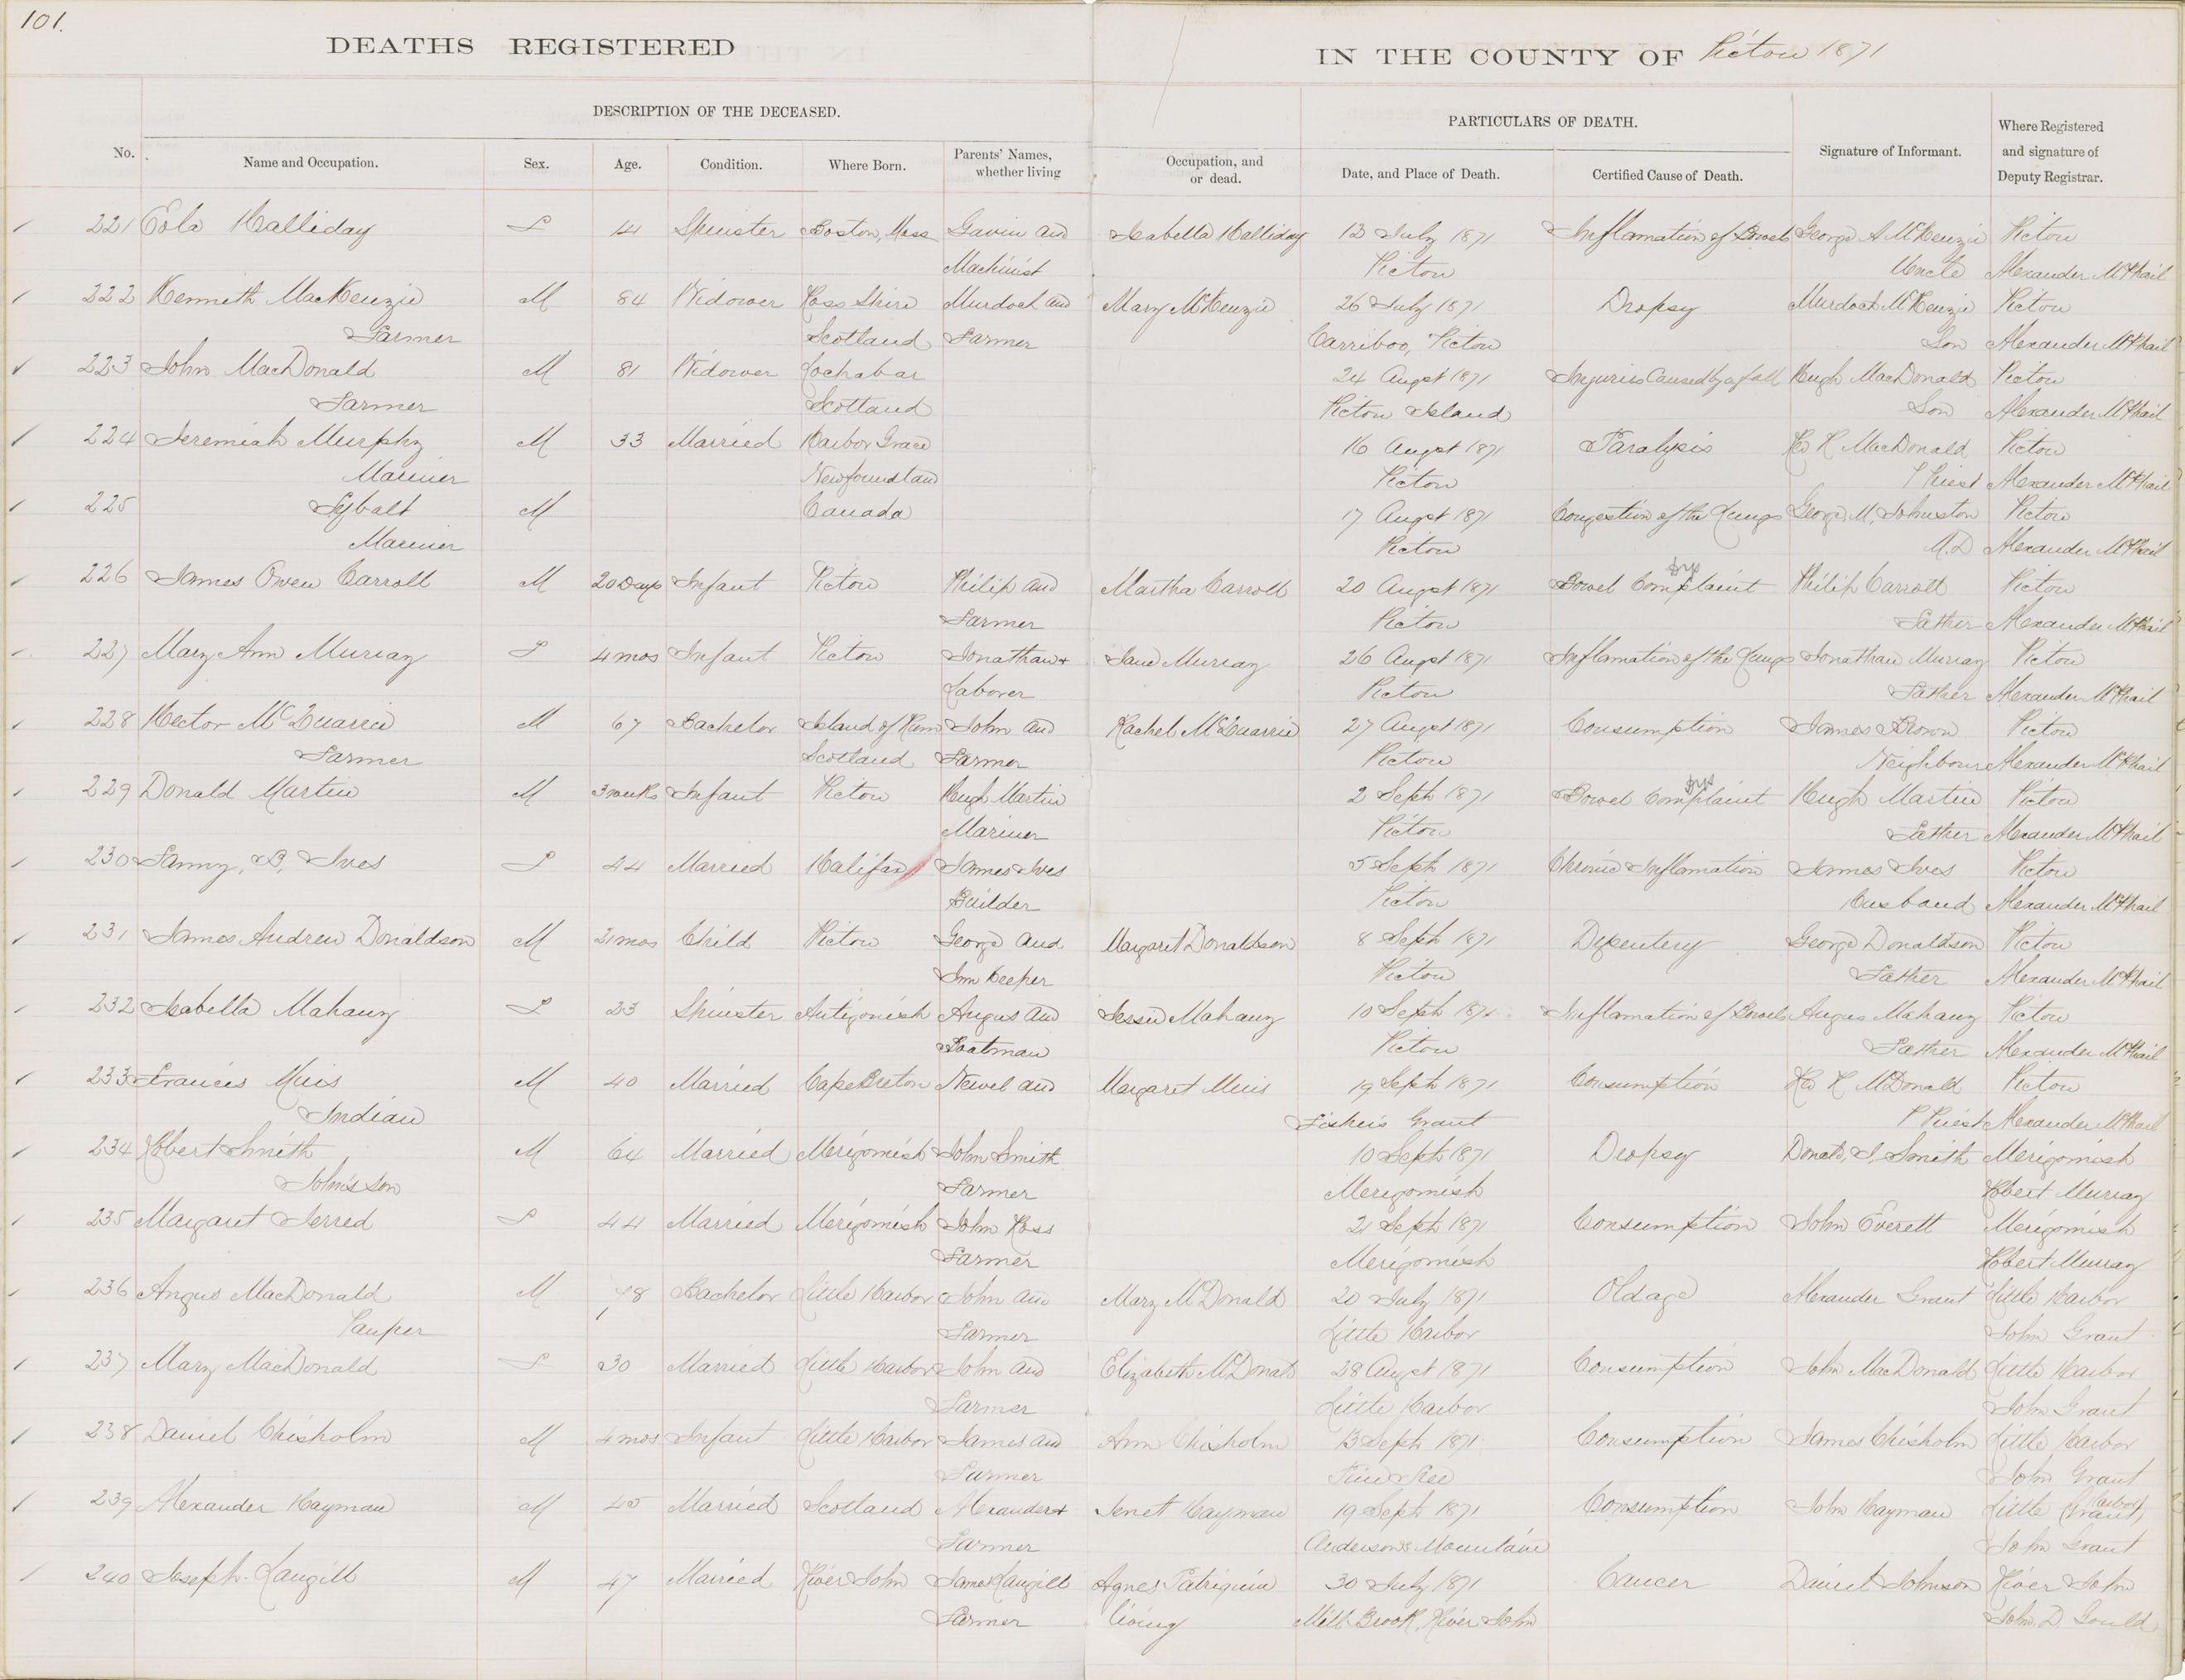 101.
DEATHS REGISTERED IN THE COUNTY OF Pictou 1871
DESCRIPTION OF THE DECEASED. PARTICULARS OF DEATH.
No. Name and Occupation. Sex. Age. Condition. Where Born. Parents' Names, whether living Occupation, and or dead. Date, and Place of Death. Certified Cause of Death. Signature of Informant. Where Registered and signature of Deputy Registrar.
221 Eola Halliday F 14 Spinster Boston, Mass Gavin and Isabella Halliday 13 July 1871 Inflamation of Bowels George A McKenzie Pictou
Machinist Pictou Uncle Alexander McPhail
222 Kenneth MacKenzie M 84 Widower Ross Shire Murdoch and Mary McKenzie 26 July 1871 Dropsy Murdoch McKenzie Pictou
Farmer Scotland Farmer Carriboo, Pictou Son Alexander McPhail
223 John MacDonald M 81 Widower Lochabar 24 Augst 1871 Injuries Caused by a fall Hugh MacDonald Pictou
Farmer Scotland Pictou Island Son Alexander McPhail
224 Jeremiah Murphy M 33 Married Harbor Grace 16 Augst 1871 Paralysis R MacDonald Pictou
Mariner Newfoundland Pictou P Priest Alexander McPhail
225 Sybalt M Canada 17 Augst 1871 Congestion of the Lungs George M. Johnston Pictou
Mariner Pictou M.D Alexander McPhail
226 James Owen Carroll M 20 Days Infant Pictou Philip and Martha Carroll 20 Augst 1871 Bowel Complaint Philip Carroll Pictou
Farmer Pictou Father Alexander McPhail
227 Mary Ann Murray F 4 mos Infant Pictou Jonathan + Jane Murray 26 Augst 1871 Inflamation of the Lungs Jonathan Murray Pictou
Laborer Pictou Father Alexander McPhail
228 Hector McQuarrie M 67 Bachelor Island of Rum John and Rachel McQuarrie 27 Augst 1871 Consumption James Brown Pictou
Farmer Scotland Farmer Pictou Neighbour Alexander McPhail
229 Donald Martin M 3 weeks Infant Pictou Hugh Martin 2 Sepb 1871 Bowel Complaint Hugh Martin Pictou
Mariner Pictou Father Alexander McPhail
230 Fanny, B, Ives F 44 Married Halifax James Ives 5 Sepb 1871 Chronic Inflamation James Ives Pictou
Builder Pictou Husband Alexander McPhail
231 James Andrew Donaldson M 21 mos Child Pictou George and Margaret Donaldson 8 Sepb 1871 Dysentery George Donaldson Pictou
Inn Keeper Pictou Father Alexander McPhail
232 Isabella Mahany F 23 Spinster Antigonish Angus and Jessie Mahany 10 Sepb 1871 Inflamation of Bowels Angus Mahany Pictou
Boatman Pictou Father Alexander McPhail
233 Francis Muis M 40 Married Cape Breton Newel and Margaret Muis 19 Sepb 1871 Consumption R McDonald Pictou
Indian Fishers Grant P Priest Alexander McPhail
234 Robert Smith M 64 Married Merigomish John Smith 10 Sepb 1871 Dropsy Donald, J. Smith Merigomish
John's son Farmer Merigomish Robert Murray
235 Margaret Jerred F 44 Married Merigomish John Ross 21 Sepb 1871 Consumption John Everett Merigomish
Farmer Merigomish Robert Murray
236 Angus MacDonald M 78 Bachelor Little Harbor John and Mary McDonald 20 July 1871 Old age Alexander Grant Little Harbor
Pauper Farmer Little Harbor John Grant
237 Mary MacDonald F 30 Married Little Harbor John and Elizabeth McDonald 28 Augst 1871 Consumption John MacDonald Little Harbor
Farmer Little Harbor John Grant
238 Daniel Chisholm M 4 mos Infant Little Harbor James and Ann Chisholm 13 Sepb 1871 Consumption James Chisholm Little Harbor
Farmer Pine Tree John Grant
239 Alexander Hayman M 45 Married Scotland Alexander + Jenet Hayman 19 Sepb 1871 Consumption John Hayman Little (Grant) Harbor
Farmer Andersons Mountain John Grant
240 Joseph Langill M 47 Married River John James Langill Agnes Patriquin 30 July 1871 Cancer Daniel Johnson River John
Farmer living Mill-Brook, River John John. D Gould